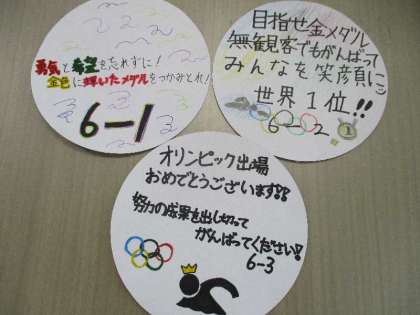 勇気と希望を忘れずに!
金色に輝いたメダルをつかみとれ!
6-1
目指せ金メダル
無観客でもがんばって
みんなを笑顔に
世界1位!!
6-2
1
オリンピック出場
おめでとうございます!!
努力の成果を出し切って
がんばってください!
6-3